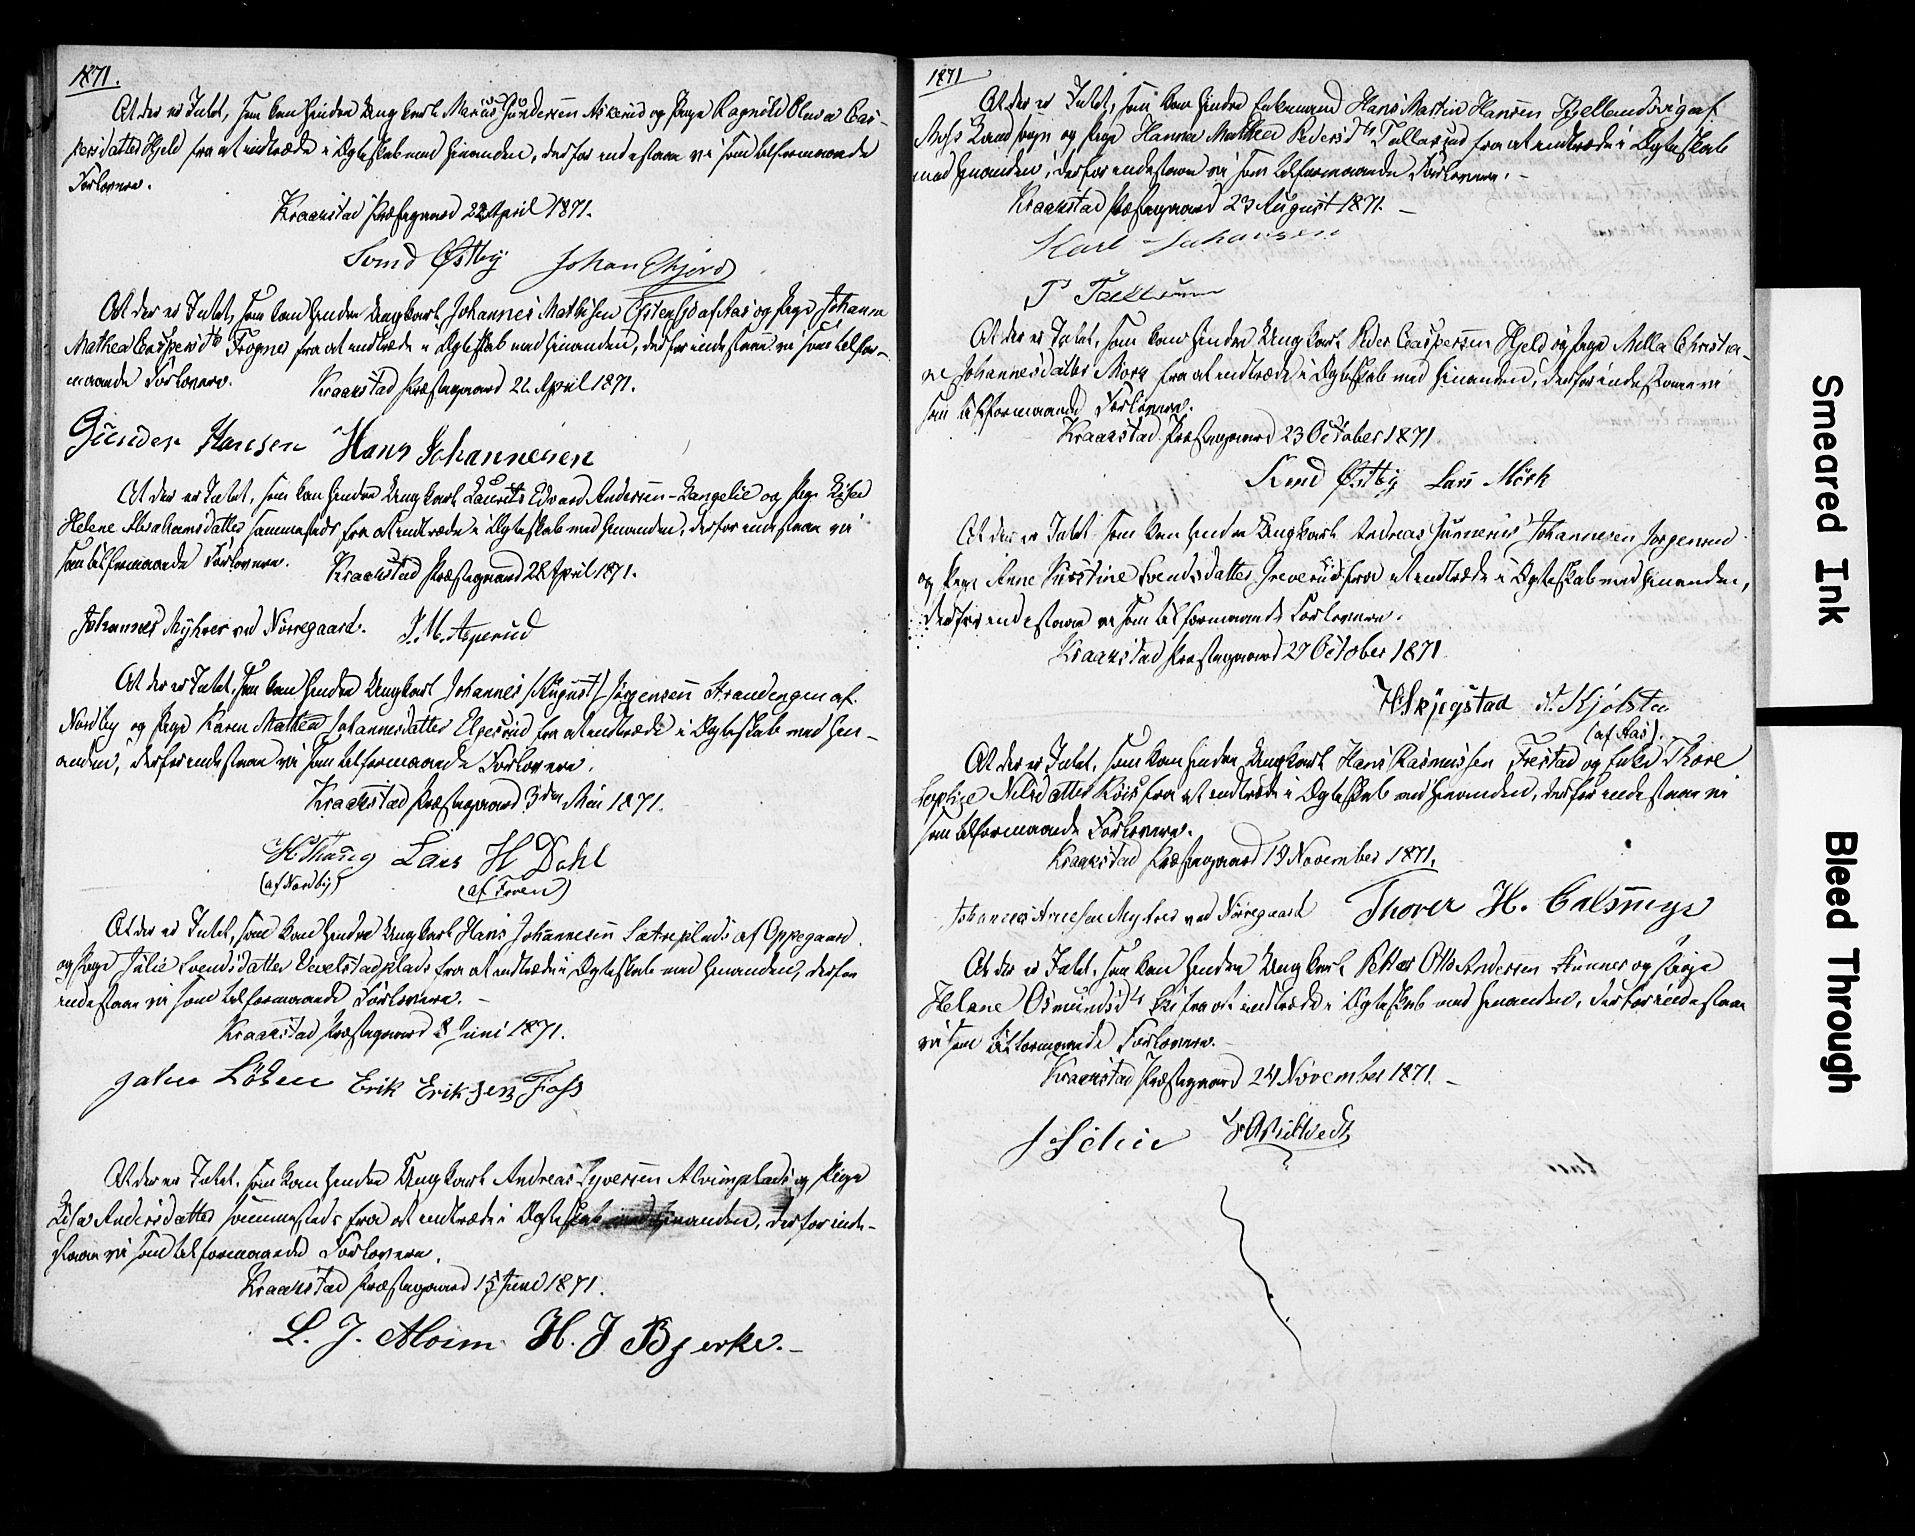 1871.
At der er Intet, som kan hindre Ungkarl Marius Gundersen Askerud og Pige Ragnild Olava Cas-
persdatter Hjeld fra at indtræde i Ægteskab med hinanden, derfor indestaae vi som tilformaaende
Forlovere.
Kraakstad Præstegaard 22 April 1871.
Svend Østby Johan
At der er Intet, som kan hindre Ungkarl Johannes Mathisen af Aas og Pige Johanne
Mathea Caspersdtr Frogner fra at indtræde i Ægteskab med hinanden, derfor indestaae vi som tilfor-
maaende Forlovere. Kraakstad Præstegaard 22 April 1871.
Gunder Hansen Hans Johannesen
At der er Intet, som kan hindre Ungkarl Laurits Edvard Andersen Langelie og Pige Lise
Helene Abrahamsdatter sammesteds fra at indtræde i Ægteskab med hinanden, derfor indestaae vi
som tilformaaende Forlovere. Kraakstad Præstegaard 28 April 1871.
Johannes Myhrer ved Nørregaard. P. M. Asperud
At der er Intet, som kan hindre Ungkarl Johannes (August) Jørgensen Strandengen af
Nordby og Pige Karen Mathea Johannesdatter Elgesrud fra at indtræde i Ægteskab med hin-
anden, derfor indestaae vi som tilformaaende Forlovere.
Kraakstad Præstegaard 3den Mai 1871.
H Thaug Lars H Dahl
(af Nordby) (af Froen)
At der er Intet, som kan hindre Ungkarl Hans Johannesen Sætreplads af Oppegaard
og Pige Julie Svendsdatter Vevelstadplads fra at indtræde i Ægteskab med hinanden, derfor
indestaae vi som tilformaaende Forlovere. -
Kraakstad Præstegaard 8 Juni 1871.
Løken Erik Eriksen Foss
At der er Intet, som kan hindre Ungkarl Andreas Syversen Alvimplads og Pige
Lise Andersdatter sammesteds fra at indtræde i Ægteskab med hinanden, derfor inde-
staae vi som tilformaaende Forlovere.
Kraakstad Præstegaard 15 Juni 1871.
L. J. Alvim H. J Bjerke. -
1871
At der er Intet, som kan hindre Enkemand Hans Martin Hansen Kjellandsvig af
Moss Landsogn og Pige Hanna Mathea Pedersdtr Tallerud fra at indtræde i Ægteskab
med hinanden, derfor indestaae vi som tilformaaende Forlovere. -
Kraakstad Præstegaard 23 August 1871. -
Karl Johansen
P
At der er Intet, som kan hindre Ungkarl Peder Caspersen Hjeld og Pige Mella Christia-
ne Johannesdatter Mørk fra at indtræde i Ægteskab med hinanden, derfor indestaae vi
som tilformaaende Forlovere.
Kraakstad Præstegaard 23 October 1871
Svend Østby Lars Mörk
At der er Intet som kan hindre Ungkarl Andreas Gunerius Johannesen Jørgenrud
og Pige Anne Kirstine Svendsdatter Greverud fra at indtræde i Ægteskab med hinanden,
derfor indestaae vi som tilformaaende Forlovere.
Kraakstad Præstegaard 27 October 1871
H Skjegstad N. Kjølstad
(af Aas).
At der er Intet, som kan hindre Ungkarl Hans Rasmussen Frestad og Enke Thore
Sophie Nilsdatter Kois fra at indtræde i Ægteskab med hinanden, derfor indestaae vi
som tilformaaende Forlovere.
Kraakstad Præstegaard 19 November 1871.
Johannes Arnesen Myhrer ved Nørregaard Thorer H.
At der er Intet, som kan hindre Ungkarl Petter Otto Andersen Finnes og Pige
Helene Osmundsdtr Ski fra at indtræde i Ægteskab med hinanden, derfor indestaae
vi som tilformaaende Forlovere. -
Kraakstad Præstegaard 24 November 1871. -
Smeared Ink
Bleed Through